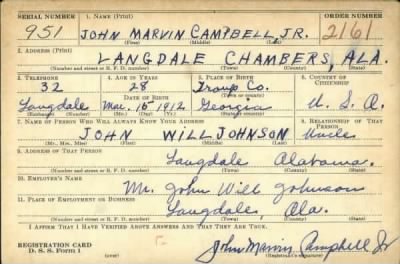 SERIAL NUMBER 1. NAME (Print) ORDER NUMBER
951 JOHN MARVIN CAMPBELL, JR. 2161
(First) (Middle) (Last)
2. ADDRESS (Print)
LANGDALE CHAMBERS, ALA.
(Number and street or R. F. D. number) (Town) (County) (State)
3. TELEPHONE 4. AGE IN YEARS 5. PLACE OF BIRTH 6. COUNTRY OF CITIZENSHIP
32 28 Troup Co.
DATE OF BIRTH (Town or county)
Langdale Mar. 15 1912 Georgia U. S. A.
(Exchange) (Number) (Mo.) (Day) (Yr.) (State or country)
7. NAME OF PERSON WHO WILL ALWAYS KNOW YOUR ADDRESS 8. RELATIONSHIP OF THAT PERSON
JOHN WILL JOHNSON Uncle
(Mr., Mrs., Miss) (First) (Middle) (Last)
9. ADDRESS OF THAT PERSON
Langdale Alabama.
(Number and street or R. F. D. number) (Town) (County) (State)
10. EMPLOYER'S NAME
Mr. John Will Johnson
11. PLACE OF EMPLOYMENT OR BUSINESS
Langdale, Ala.
(Number and street or R. F. D. number) (Town) (County) (State)
I AFFIRM THAT I HAVE VERIFIED ABOVE ANSWERS AND THAT THEY ARE TRUE.
REGISTRATION CARD
D. S. S. Form 1 (over) John Marvin Campbell Jr
(Registrant's signature)